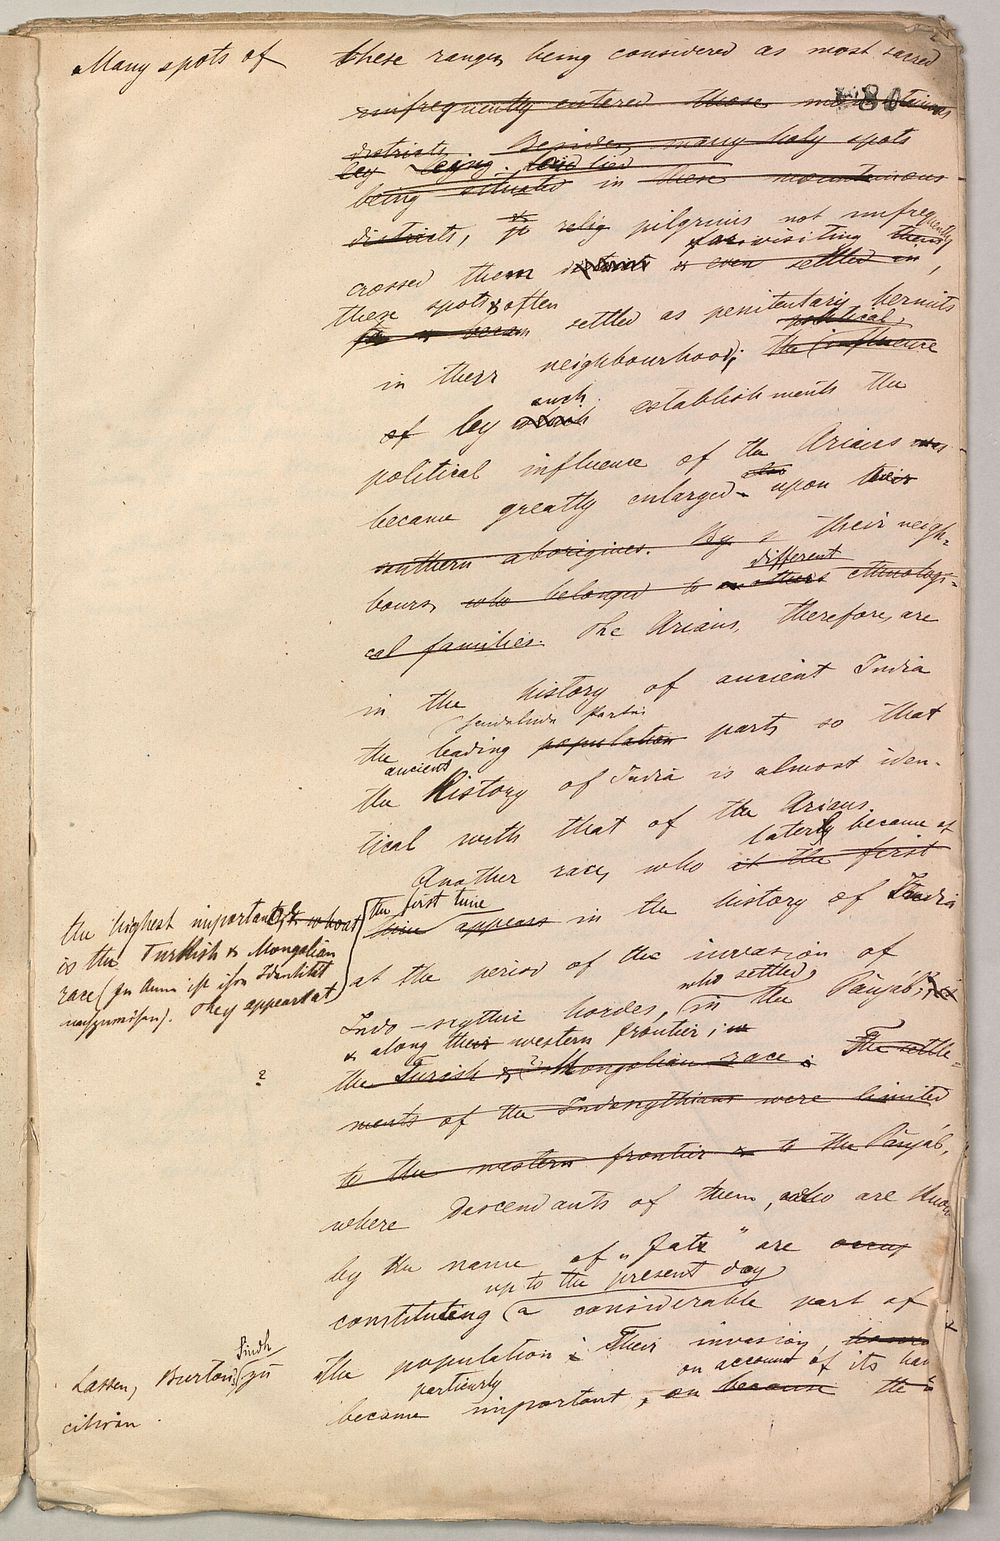 Many spots of these ranges being considered as most sacred
80
unfrequently entered these mountainous
districts. Besides, many holy spots
by being
being situated in these mountainous
districts, relig pilgrims not unfrequently
for visiting them
crossed them & even settled in,
these spots & often
settled as penitentary hermits
political
in their neighbourhood; the influence
such
of by which establishments the
political influence of the Arians was
also
became greatly enlarged upon their
southern aborigines. By their neigh-
different
bours, who belonged to others ethnologi-
cal families. The Arians, therefore, are
in the history of ancient India
the leading population part, so that
ancient
the History of India is almost iden-
tical with that of the Arians.
laterly became of
Another race, who at the first
the highest importance, whoat
the first time
time appears in the history of India
is the Turkish & Mongolian
race (
nachzuweisen). They appear at
at the period of the invasion of
who settled
Indo-scythic hordes, in the Panjáb;
& along their western frontier; in
the Turish & ? Mongolian race: The settle-
?
ments of the Indoscythians were limited
to the western frontier & to the Panjáb,
where descendants of them, who are known
by the name of "Jats" are occup
up to the present day
constituteng a considerable part of
the population: Their invasion,
on account of its hav
Sindh
Lassen, Burton, zu
citiren.
perticurly
became important, on because the